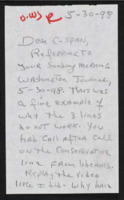 5-30-98
Dear C-SPAN,
Reference to
your Sunday morning
Washington Journal,
5-30-98. This was
a fine example of
why the 3 lines
do not work. You
had call after call
on the conservative
line from liberals.
Replay the video
like I did. Why have